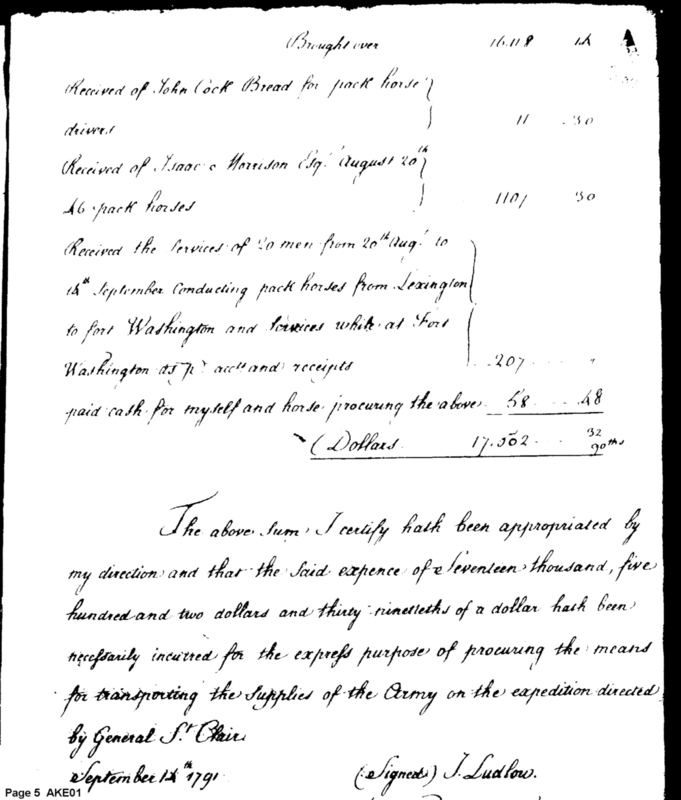 Brought over 16118 14
Received of John Cock Bread for pack horse
drivers 11 30
Received of Isaac Morrison Esqr August 20th
46 pack horses 1107 30
Received the services of 20 men from 20th Augt to
14th September conducting pack horses from Lexington
to fort Washington and services while at Fort
Washington as pr acctt and receipts 207 "
paid cash for myself and horse procuring the above 58 48
(Dollars 17.502 32/90ths
The above sum I certify hath been appropriated by
my direction and that the said expence of Seventeen thousand, five
hundred and two dollars and thirty ninetieths of a dollar hath been
necessarily incurred for the express purpose of procuring the means
for transporting the supplies of the Army on the expedition directed
by General St Clair
September 14th 1791 (Signed) J. Ludlow.
Page 5 AKE01